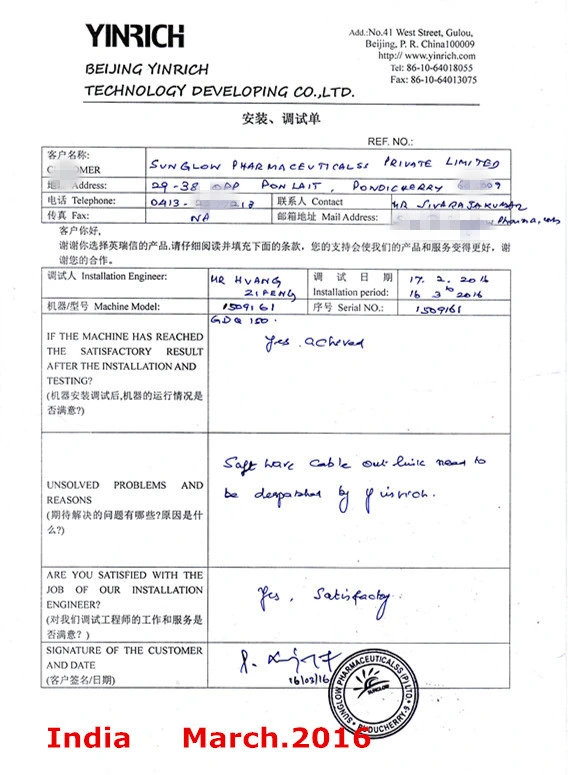 YINRICH
BEIJING YINRICH
TECHNOLOGY DEVELOPING CO.,LTD.
Add.:No.41 West Street, Gulou,
Beijing, P. R. China100009
http:// www.yinrich.com
Tel: 86-10-64018055
Fax: 86-10-64013075
安装、调试单
REF. NO.:
客户名称:
SUNGLOW PHARMACEUTICALSS PRIVATE LIMITED
Address: 29-38 ODP PONLAIT, PONDICHERRY
电话 Telephone: 0413- 联系人 Contact MR SIVARAJAKUMAR
传真 Fax: NA 邮箱地址 Mail Address:
客户你好,
谢谢你选择英瑞信的产品,请仔细阅读并填充下面的条款，您的支持会使我们的产品和服务变得更好，谢
谢您的合作。
调试人 Installation Engineer: MR HUANG ZIFENG
调 试 日 期 Installation period: 17. 2. 2016
16 3 2016
机器/型号 Machine Model: 1509161 序号 Serial NO.: 1509161
GDQ 150.
IF THE MACHINE HAS REACHED
THE SATISFACTORY RESULT
AFTER THE INSTALLATION AND
TESTING?
(机器安装调试后,机器的运行情况是
否满意?)
Yes acheved
UNSOLVED PROBLEMS AND
REASONS
(期待解决的问题有哪些?原因是什
么?)
Soft ware cable out link need to
be despatched by Yinrich.
ARE YOU SATISFIED WITH THE
JOB OF OUR INSTALLATION
ENGINEER?
(对我们调试工程师的工作和服务是
否满意？)
Yes, Satisfactory
SIGNATURE OF THE CUSTOMER
AND DATE
(客户签名/日期)
16/03/16
SUNGLOW PHARMACEUTICALSS (P) LTD.
SUNGLOW
PUDUCHERRY-9
India March.2016